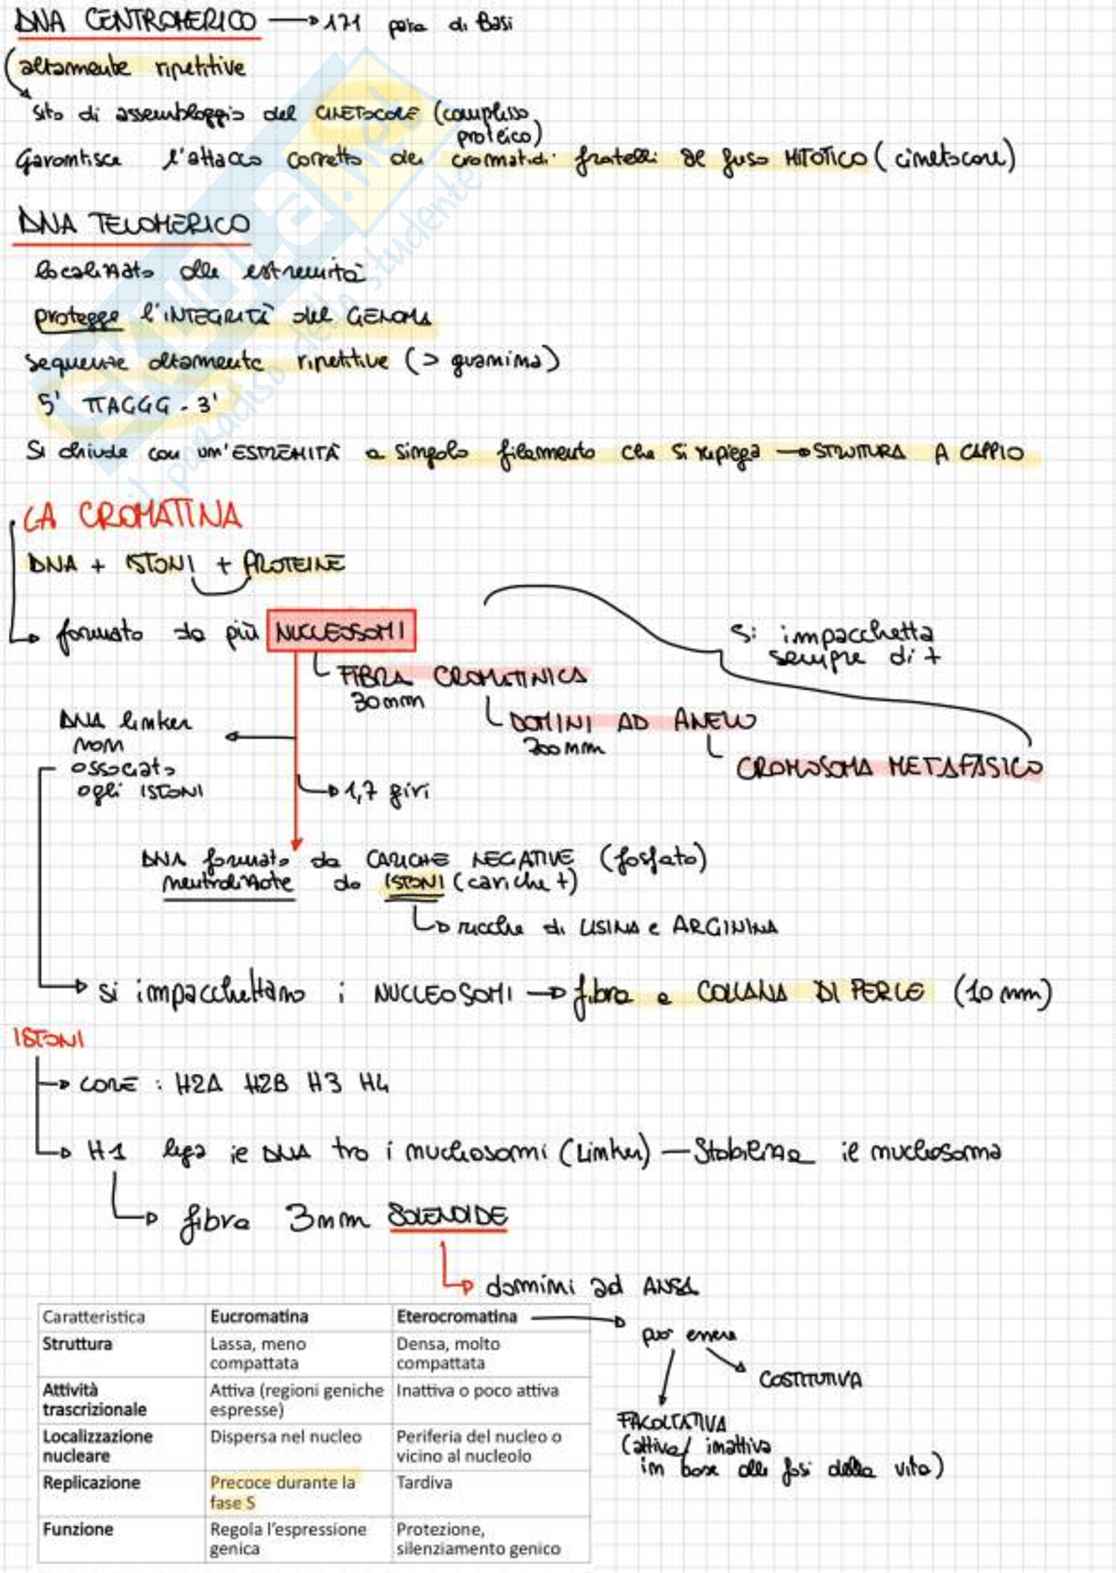 DNA CENTROMERICO → 171 paia di Basi
(altamente ripetitive
sito di assemblaggio del CINETOCORE (complesso
proteico)
Garantisce l'attacco corretto dei cromatidi fratelli al fuso MITOTICO (cinetocore)
DNA TELOMERICO
localizzato alle estremità
protegge l'INTEGRITÀ del GENOMA
sequenze altamente ripetitive (> guanina)
5' TTAGGG - 3'
Si chiude con un'ESTREMITÀ a singolo filamento che si ripiega → STRUTTURA A CAPPIO
LA CROMATINA
DNA + ISTONI + PROTEINE
formato da più NUCLEOSOMI
Si impacchetta
sempre di +
FIBRA CROMATINICA
30 nm
DOMINI AD ANELLO
300 nm
CROMOSOMA METAFASICO
DNA linker
non
associato
agli ISTONI
1,7 giri
DNA formato da CARICHE NEGATIVE (fosfato)
neutralizzate da ISTONI (cariche +)
ricche di LISINA e ARGININA
si impacchettano i NUCLEOSOMI → fibra a COLLANA DI PERLE (10 nm)
ISTONI
CORE : H2A H2B H3 H4
H1 lega il DNA tra i nucleosomi (Linker) — Stabilizza il nucleosoma
fibra 3nm SOLENOIDE
domini ad ANSA
Caratteristica Eucromatina Eterocromatina
può essere
Struttura Lassa, meno compattata Densa, molto compattata
COSTITUTIVA
Attività trascrizionale Attiva (regioni geniche espresse) Inattiva o poco attiva
FACOLTATIVA
(attiva/ inattiva
in base alle fasi della vita)
Localizzazione nucleare Dispersa nel nucleo Periferia del nucleo o vicino al nucleolo
Replicazione Precoce durante la fase S Tardiva
Funzione Regola l'espressione genica Protezione, silenziamento genico
skuola.net
il paradiso dello studente